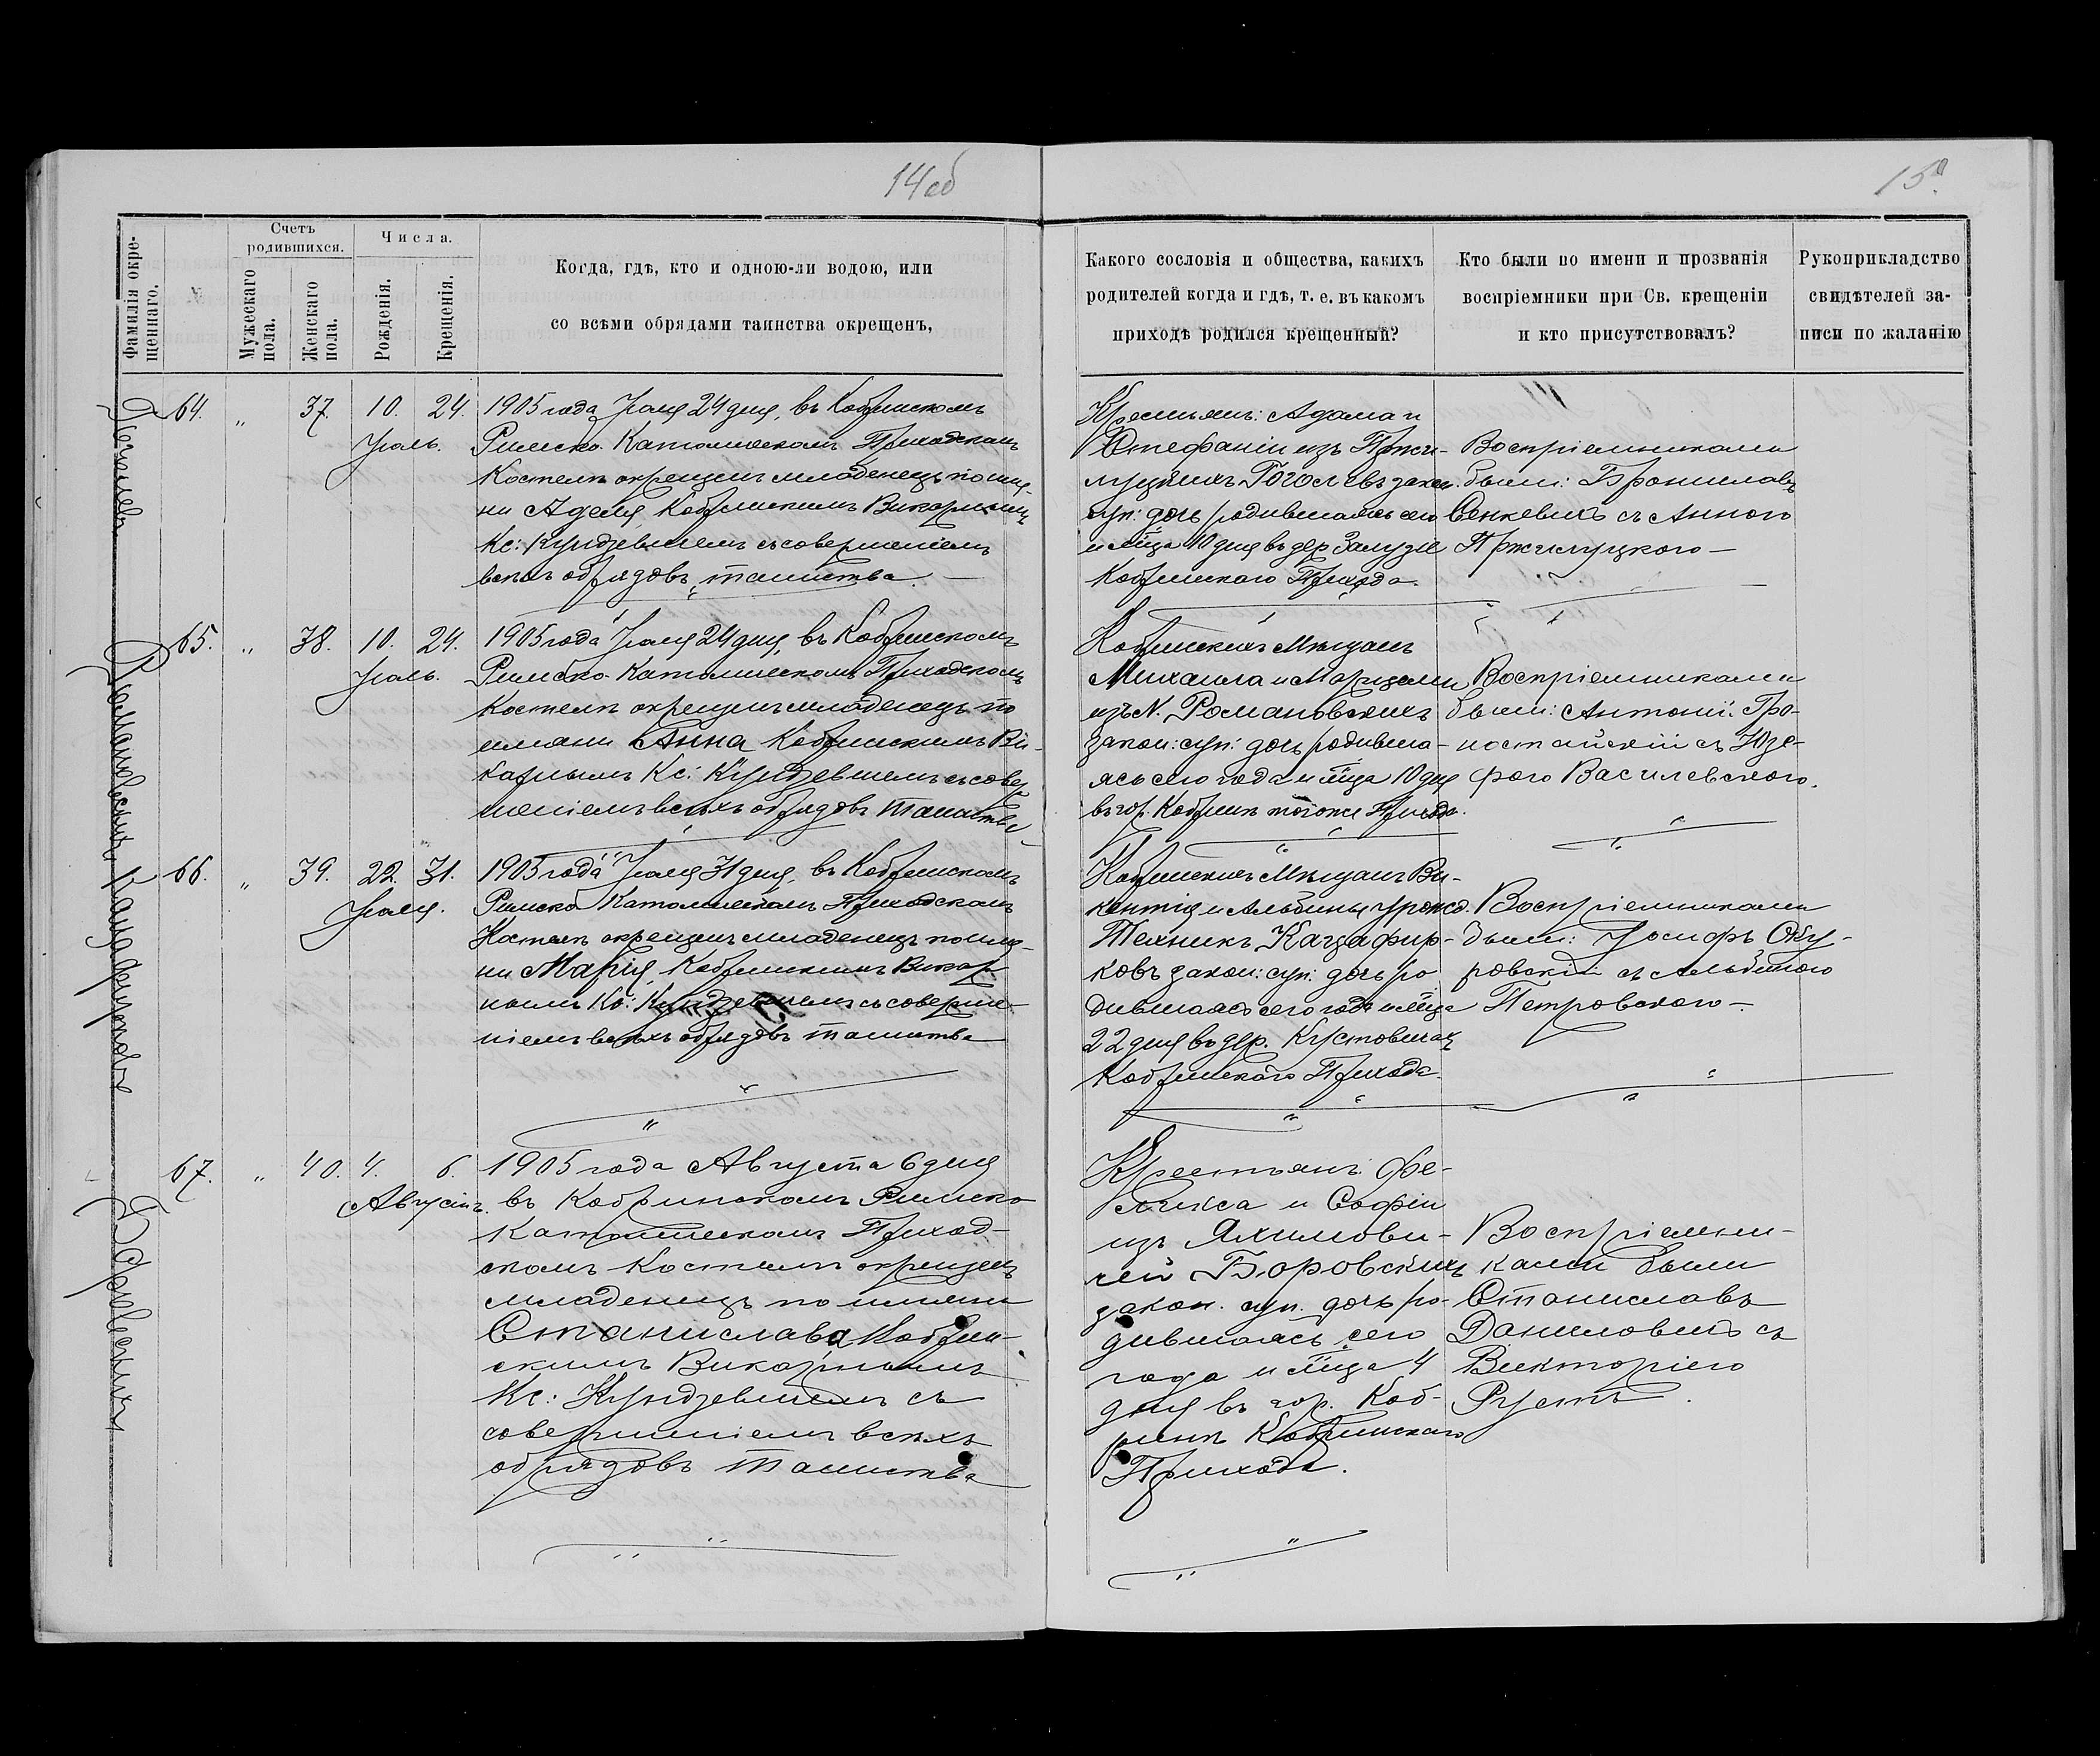 14 об
15
Фамилія окре-
щеннаго.
№
Счетъ
родившихся.
Мужескаго
пола.
Женскаго
пола.
Числа.
Рожденія.
Крещенія.
Когда, гдѣ, кто и одною-ли водою, или
со всѣми обрядами таинства окрещенъ,
Какого сословія и общества, какихъ
родителей когда и гдѣ, т. е. въ какомъ
приходѣ родился крещенный?
Кто были по имени и прозванія
воспріемники при Св. крещеніи
и кто присутствовалъ?
Рукоприкладство
свидѣтелей за-
писи по жаланію
64. " 37. 10. 24.
Іюль.
1905 года Іюля 24 дня, въ Кобринскомъ
Римско-Католическомъ Приходскомъ
Костелѣ окрещенъ младенецъ по име-
ни Аделя Кобринскимъ Викарнымъ
Кс: Кундзевичемъ съ совершеніемъ
всѣхъ обрядовъ таинства. —
Крестьянъ: Адама и
Стефаніи изъ Пржи-
луцкихъ закон.
суп: дочь родившаяся сего
мѣца 10 дня въ дер. Залузье
Кобринскаго Прихода.
Воспріемниками
были: Брониславъ
Сенкевичъ съ Анною
Пржилуцкою —
Романовскихъ
65. " 38. 10. 24.
Іюль.
1905 года Іюля 24 дня, въ Кобринскомъ
Римско-Католическомъ Приходскомъ
Костелѣ окрещенъ младенецъ по
имяни Анна Кобринскимъ Ви-
карнымъ Кс: Кундзевичемъ съ совер-
шеніемъ всѣхъ обрядовъ таинства
Кобринскихъ Мѣщанъ
Михаила и Марцели
изъ N. Романовскихъ
закон: суп: дочь родивша-
ясь сего года и мѣца 10 дня
въ гор. Кобринѣ тогоже Прихода.
Воспріемниками
были: Антоній Гро-
ностайскій съ Юзе-
фою Василевскою.
Кацафирковъ
66. " 39. 22. 31.
Іюля.
1905 года Іюля 31 дня, въ Кобринскомъ
Римско Католическомъ Приходскомъ
Костелѣ окрещенъ младенецъ по име-
ни Марія Кобринскимъ Викар-
нымъ Кс: Кундзевичемъ съ соверше-
ніемъ всѣхъ обрядовъ таинства
Кобринскихъ Мѣщанъ Ви-
кентія и Альбины урожд.
Кацафир-
ковъ закон: суп: дочь ро-
дившаяся сего года и мѣца
22 дня въ дер. Кустовичах
Кобринскаго Прихода.
Воспріемниками
были: Іосифъ
ровскій съ Альбиною
Петровскою —.
Боровскихъ
67. " 40. 4. 6.
Августъ.
1905 года Августа 6 дня
въ Кобринскомъ Римско
Католическомъ Приход-
скомъ Костелѣ окрещенъ
младенецъ по имяни
Станислава Кобрин-
скимъ Викарнымъ
Кс: Кундзевичемъ съ
совершеніемъ всѣхъ
обрядовъ таинства
Крестьянъ: Фе-
ликса и Софіи
изъ Яхимови-
чей Боровскихъ
закон. суп. дочь ро-
дившаясь сего
года и мѣца 4
дня въ гор. Коб-
ринѣ Кобринскаго
Прихода.
Воспріемни-
ками были
Станиславъ
Даниловичъ съ
Викторіею
Рустъ.